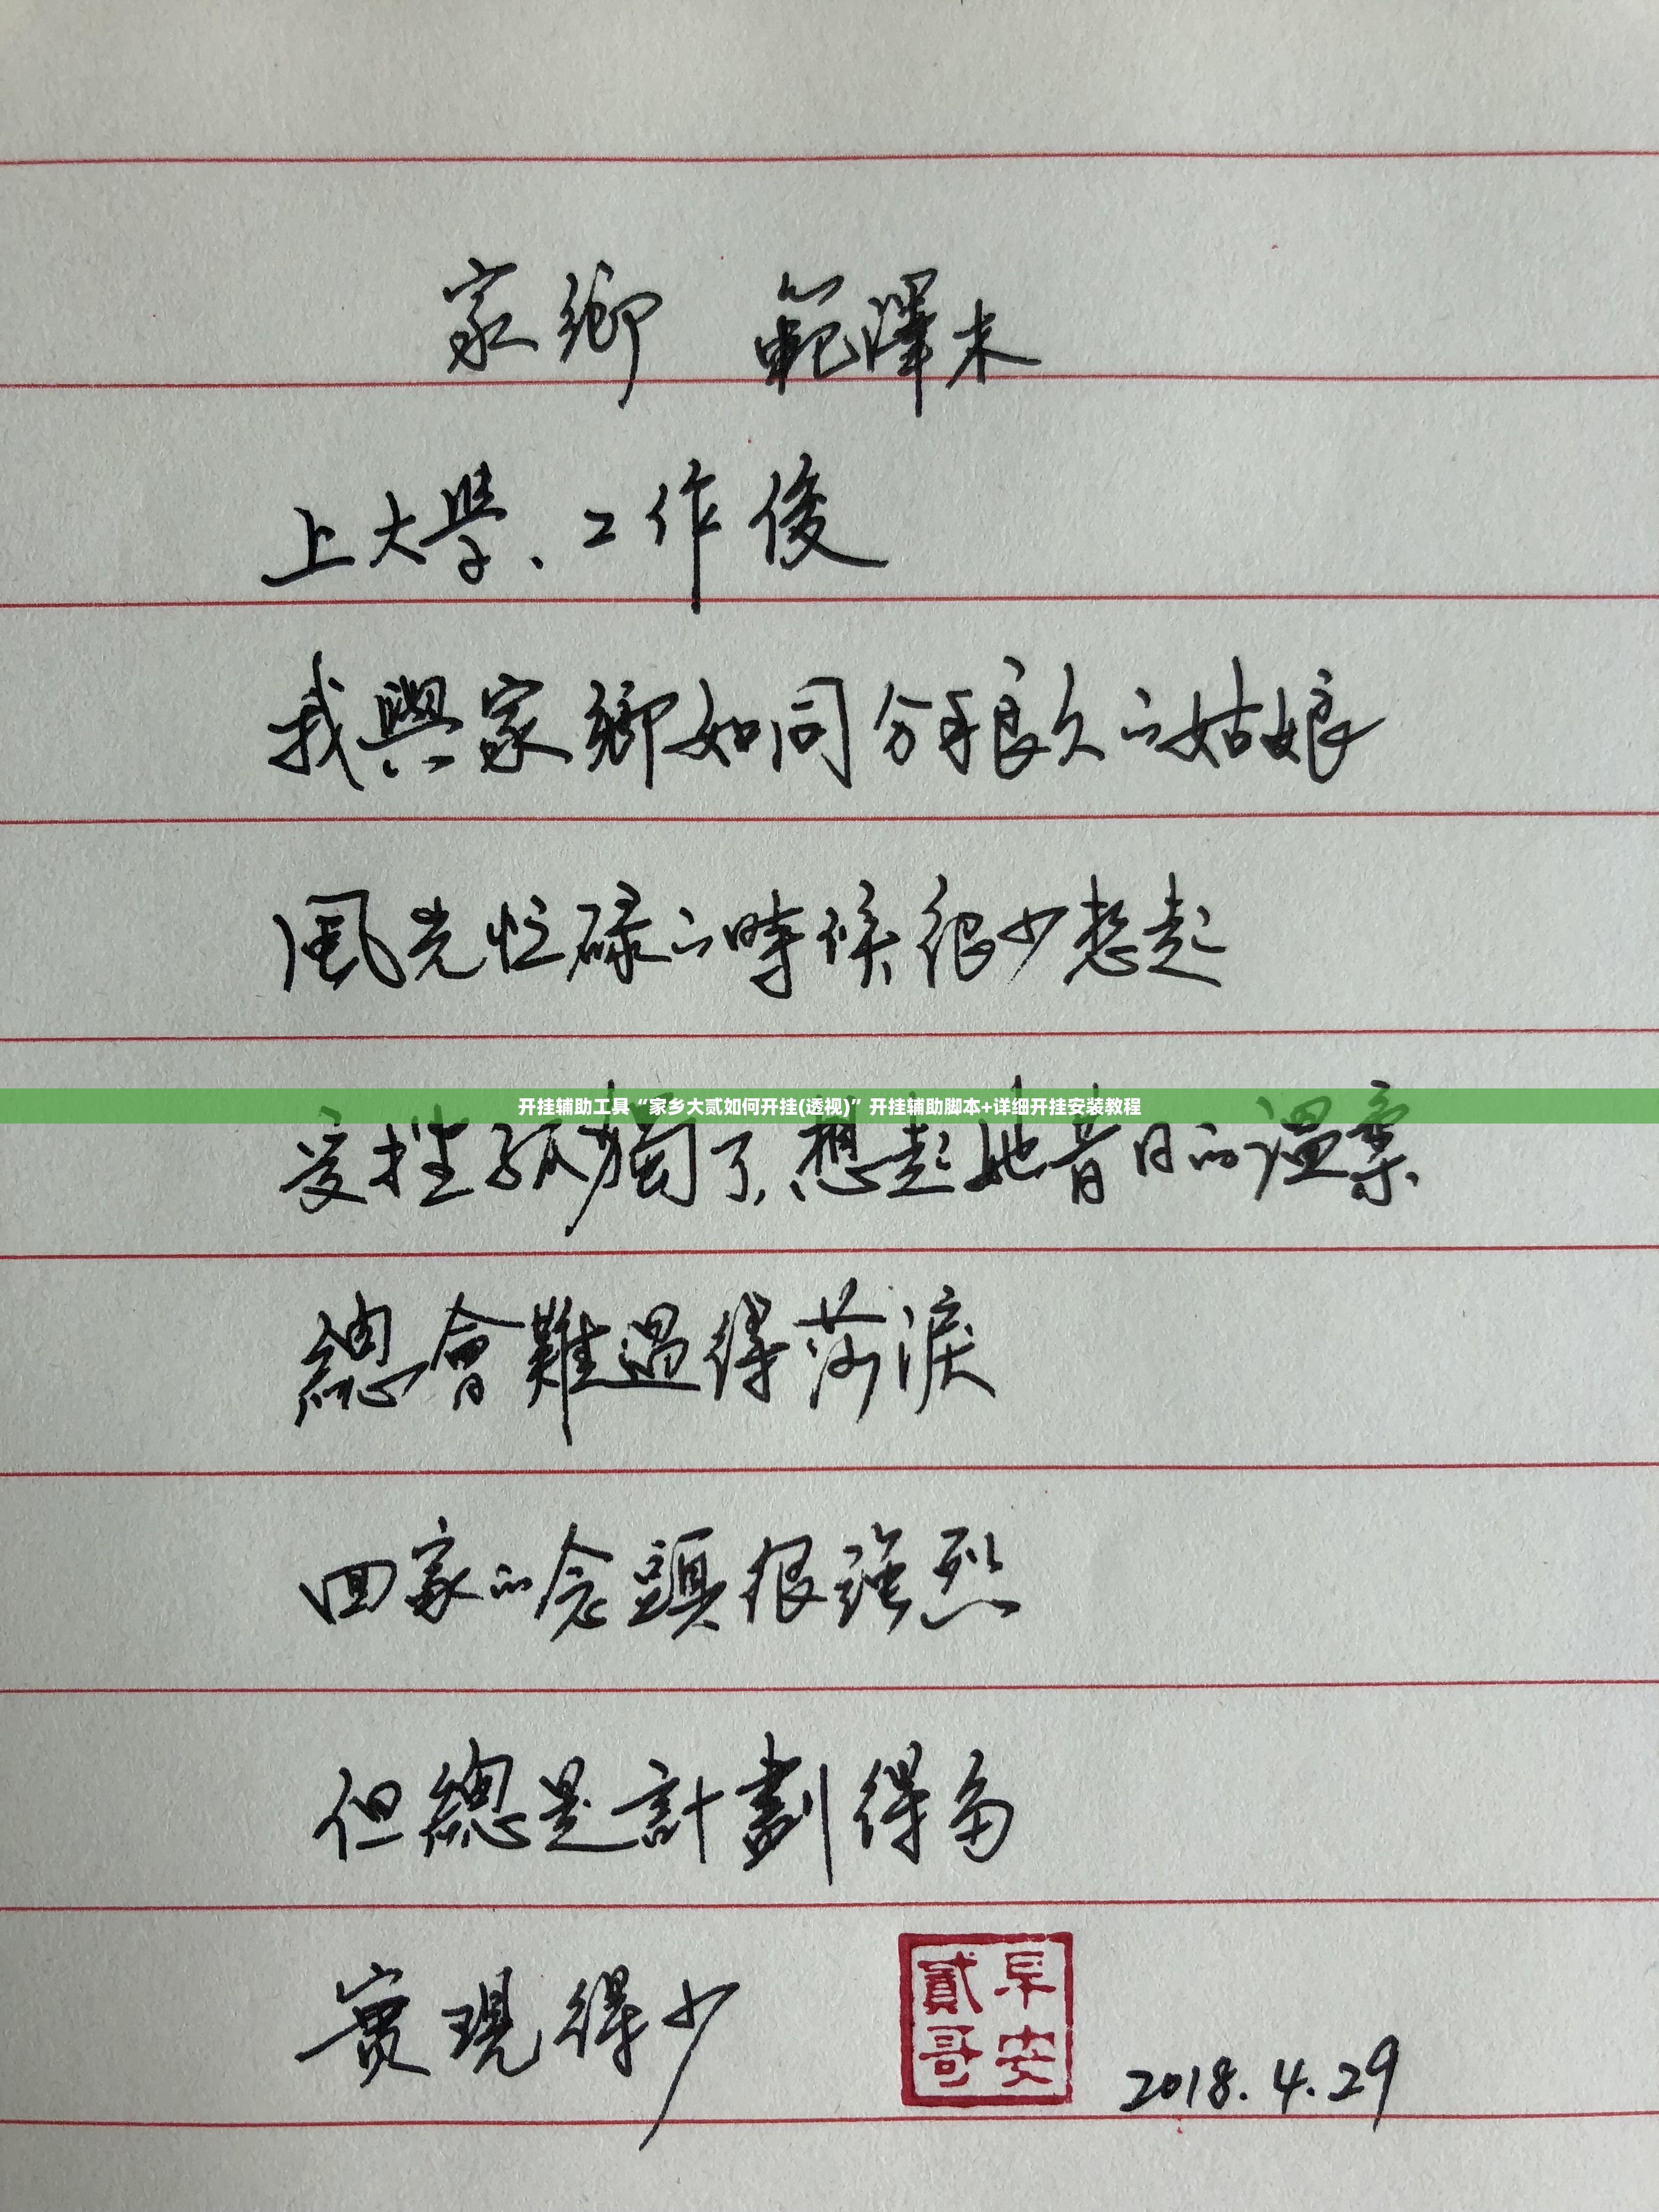 家鄉 範澤木
上大學、工作後
我與家鄉如同分手很久的姑娘
風光忙碌的時候很少想起
开挂辅助工具“家乡大贰如何开挂(透视)”开挂辅助脚本+详细开挂安装教程
受挫孤獨了,想起她昔日的溫柔
總會難過得落淚
回家的念頭很强烈
但總是計劃得多
實現得少
早安
貳哥
2018.4.29